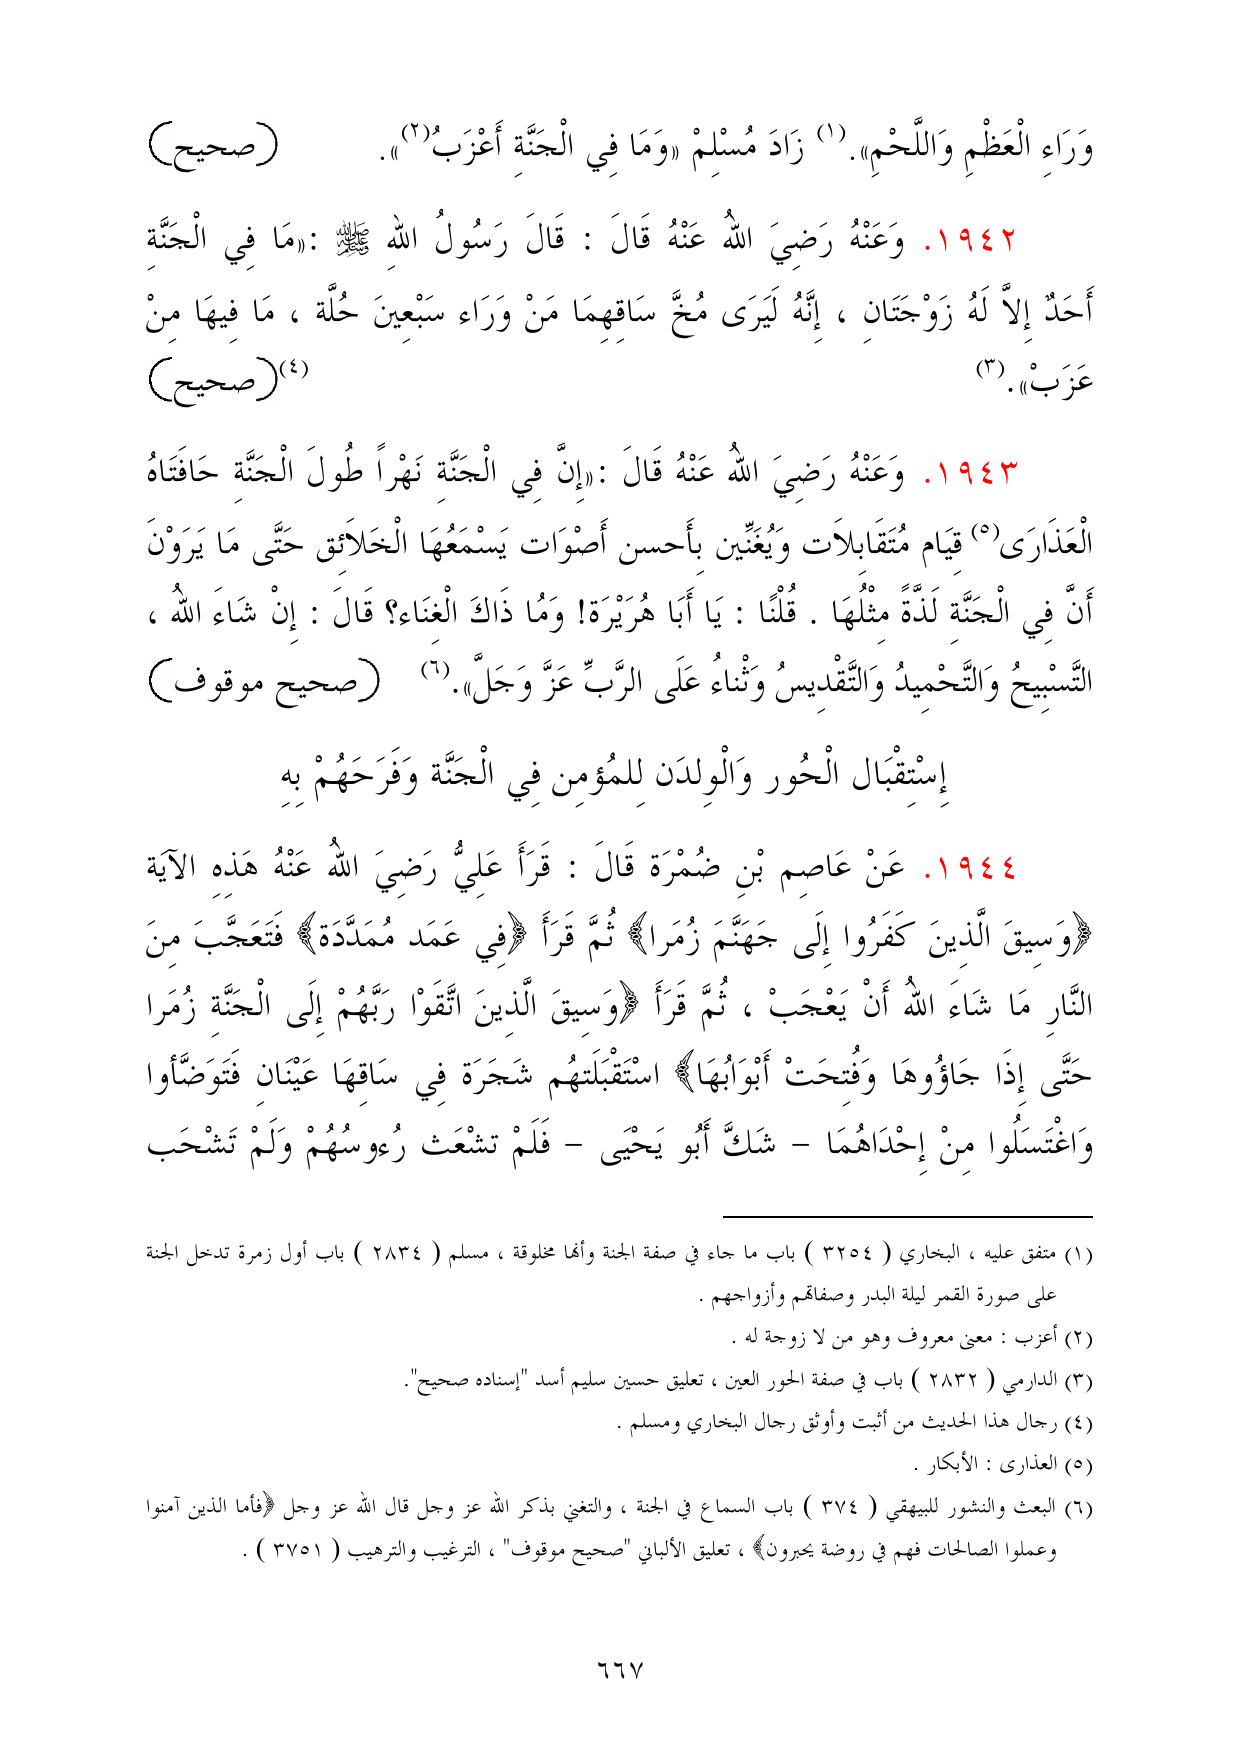 وَرَاءِ الْعَظْمِ وَاللَّحْمِ». (١) زَادَ مُسْلِمْ «وَمَا فِي الْجَنَّةِ أَعْزَبُ(٢)». (صحيح)
١٩٤٢. وَعَنْهُ رَضِيَ اللهُ عَنْهُ قَالَ : قَالَ رَسُولُ اللهِ ﷺ :«مَا فِي الْجَنَّةِ
أَحَدٌ إِلاَّ لَهُ زَوْجَتَانِ ، إِنَّهُ لَيَرَى مُخَّ سَاقِهِمَا مَنْ وَرَاء سَبْعِينَ حُلَّة ، مَا فِيهَا مِنْ
عَزَبْ». (٣) (٤)(صحيح)
١٩٤٣. وَعَنْهُ رَضِيَ اللهُ عَنْهُ قَالَ :«إِنَّ فِي الْجَنَّةِ نَهْراً طُولَ الْجَنَّةِ حَافَتَاهُ
الْعَذَارَى(٥) قِيَام مُتَقَابِلاَت وَيُغَنِّين بِأَحسن أَصْوَات يَسْمَعُهَا الْخَلاَئِق حَتَّى مَا يَرَوْنَ
أَنَّ فِي الْجَنَّةِ لَذَّةً مِثْلُهَا . قُلْنًا : يَا أَبَا هُرَيْرَة! وَمُا ذَاكَ الْغِنَاء؟ قَالَ : إِنْ شَاءَ اللهُ ،
التَّسْبِيحُ وَالتَّحْمِيدُ وَالتَّقْدِيسُ وَثْناءُ عَلَى الرَّبِّ عَزَّ وَجَلَّ». (٦) (صحيح موقوف)
إِسْتِقْبَال الْحُور وَالْوِلدَن لِلمُؤمِن فِي الْجَنَّة وَفَرَحَهُمْ بِهِ
١٩٤٤. عَنْ عَاصِم بْنِ ضُمْرَة قَالَ : قَرَأَ عَلِيُّ رَضِيَ اللهُ عَنْهُ هَذِهِ الآيَة
﴿وَسِيقَ الَّذِينَ كَفَرُوا إِلَى جَهَنَّمَ زُمَرا﴾ ثُمَّ قَرَأَ ﴿فِي عَمَد مُمَدَّدَة﴾ فَتَعَجَّبَ مِنَ
النَّارِ مَا شَاءَ اللهُ أَنْ يَعْجَبْ ، ثُمَّ قَرَأَ ﴿وَسِيقَ الَّذِينَ اتَّقَوْا رَبَّهُمْ إِلَى الْجَنَّةِ زُمَرا
حَتَّى إِذَا جَاؤُوهَا وَفُتِحَتْ أَبْوَابُهَا﴾ اسْتَقْبَلَتهُم شَجَرَة فِي سَاقِهَا عَيْنَانِ فَتَوَضَّأوا
وَاغْتَسَلُوا مِنْ إِحْدَاهُمَا – شَكَّ أَبُو يَحْيَى – فَلَمْ تشْعَث رُءوسُهُمْ وَلَمْ تَشْحَب
(١) متفق عليه ، البخاري ( ٣٢٥٤ ) باب ما جاء في صفة الجنة وأنها مخلوقة ، مسلم ( ٢٨٣٤ ) باب أول زمرة تدخل الجنة
على صورة القمر ليلة البدر وصفاتهم وأزواجهم .
(٢) أعزب : معنى معروف وهو من لا زوجة له .
(٣) الدارمي ( ٢٨٣٢ ) باب في صفة الحور العين ، تعليق حسين سليم أسد "إسناده صحيح".
(٤) رجال هذا الحديث من أثبت وأوثق رجال البخاري ومسلم .
(٥) العذارى : الأبكار .
(٦) البعث والنشور للبيهقي ( ٣٧٤ ) باب السماع في الجنة ، والتغني بذكر الله عز وجل قال الله عز وجل ﴿فأما الذين آمنوا
وعملوا الصالحات فهم في روضة يحبرون﴾ ، تعليق الألباني "صحيح موقوف" ، الترغيب والترهيب ( ٣٧٥١ ) .
٦٦٧